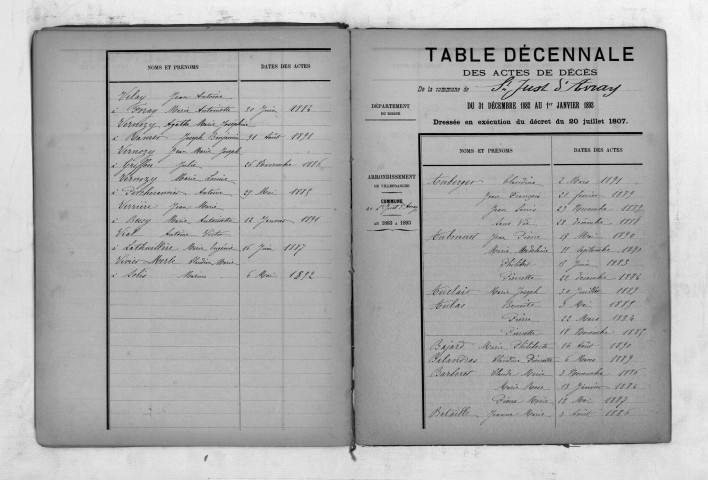 NOMS ET PRÉNOMS DATES DES ACTES
Velay Jean Antoine
à Foray Marie Antoinette 21 Juin 1884
Vernozy Agathe Marie Josephine
à Ramet Joseph Benjamin 31 Août 1891
Vernozy Jean Marie Joseph
à Griffon Julie 26 Novembre 1886
Vernozy Marie Louise
à Antoine 27 Mai 1885
Verrière Jean Marie
à Bory Marie Antoinette 12 Janvier 1891
Vial Antoine Victor
à Marie Eugénie 16 Juin 1887
Vivier-Merle Claudine Marie
à Solès 6 Mai 1892
TABLE DÉCENNALE
DES ACTES DE DÉCÈS
De la commune de St Just d'Avray
DU 31 DÉCEMBRE 1882 AU 1er JANVIER 1893
Dressée en exécution du décret du 20 juillet 1807.
DÉPARTEMENT
DU RHONE
ARRONDISSEMENT
DE VILLEFRANCHE
COMMUNE
de St Just d'Avray
DE 1883 A 1893
NOMS ET PRÉNOMS DATES DES ACTES
Auberger Claudine 2 Mars 1891
Jean François 22 février 1889
Jean Louis 27 Novembre 1887
Sans Vie 28 décembre 1888
Aubonnet Jean Pierre 19 Mai 1890
Marie Madeleine 11 Septembre 1890
Philibert 5 Juin 1883
Pierrette 22 décembre 1886
Auclair Marie Joseph 30 Juillet 1889
Aulas Benoite 3 Mai 1885
Pierre 22 Mars 1884
Pierrette 18 Novembre 1885
Bajard Marie Philiberte 14 Août 1890
Balandras Claudine Pierrette 6 Mars 1889
Barberet Claude Marie 3 Novembre 1886
Marie Rose 13 Janvier 1886
Pierre Marie 18 Mai 1887
Bataille Jeanne Marie 3 Août 1886